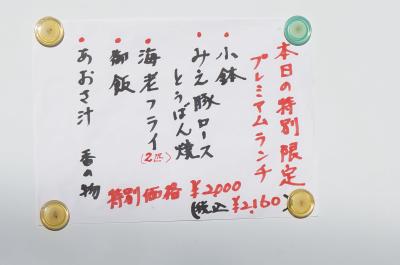 本日の特別限定
プレミアムランチ
・小鉢
・みえ豚ロース
とうばん焼
・海老フライ
(2匹)
・御飯
・あおさ汁 香の物
特別価格 ¥2,000
(税込 ¥2,160)